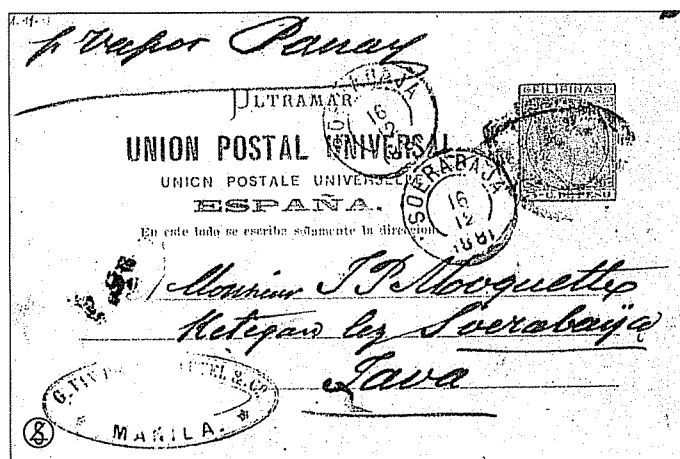 p. Vapor Panay
FILIPINAS
ULTRAMAR
UNION POSTAL UNIVERSAL
UNION POSTALE UNIVERSELLE
ESPAÑA.
En este lado se escriba solamente la direccion
SOERABAJA
16
12
SOERABAJA
16
12
1881
Monsieur J P Moquette
Ketegan lez Soerabaija
Java
& CO.
MANILA.
8